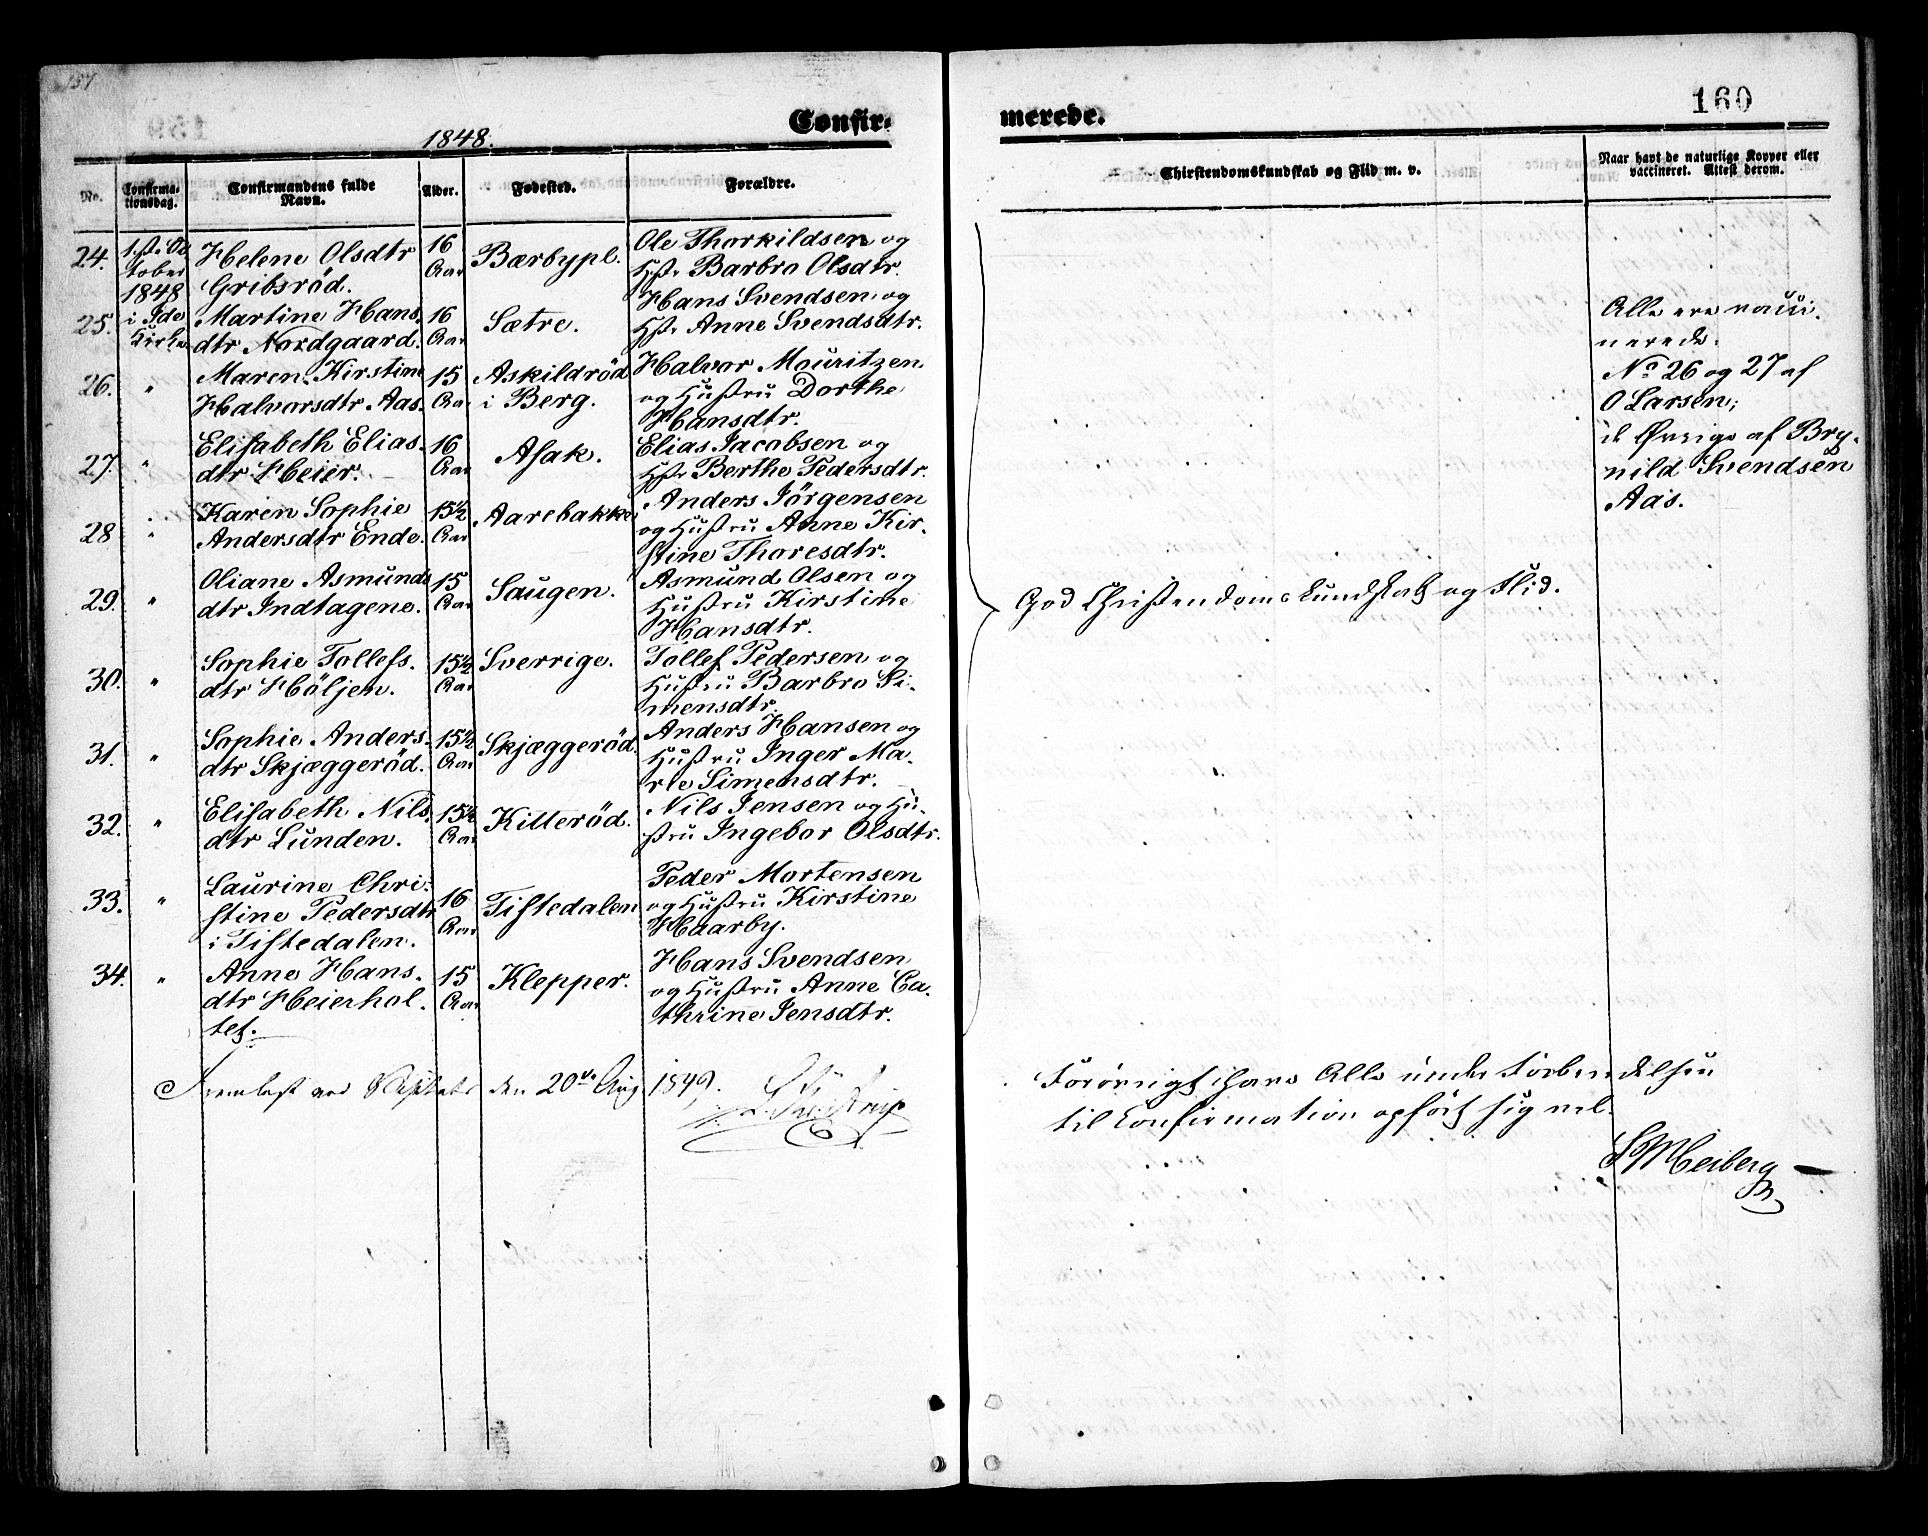 157
160
1848.
Confir=
merede.
No.
Confirma-
tionsdag.
Confirmandens fulde
Navn.
Alder.
Fødested.
Forældre.
Christendomskundskab og Flid m. v.
Naar havt de naturlige Kopper eller
vaccineret. Attest derom.
24.
1ste Oc
tober
1848
i Ide
Kirke
Helene Olsdtr
Gribsröd.
16
Aar
Bærbypl.
Ole Thorkildsen og
Hstr Barbro Olsdtr.
25.
Martine Hans
dtr Nordgaard.
16
Aar
Sætre.
Hans Svendsen og
Hstr Anne Svendsdtr.
26.
"
Maren Kirstine
Halvorsdtr Aas.
15
Aar
Askildröd
i Berg.
Halvor Mouritzen
og Hustru Dorthe
Hansdtr.
27.
"
Elisabeth Elias
dtr Heier.
16
Aar
Asak.
Elias Jacobsen og
Hstr Berthe Pedersdtr.
28
"
Karen Sophie
Andersdtr Ende.
15½
Aar
Aarebakke
Anders Jörgensen
og Hustru Anne Kir-
stine Thoresdtr.
29.
"
Oliane Asmunds
dtr Indtagene.
15
Aar
Saugen.
Asmund Olsen og
Hustru Kirstine
Hansdtr.
30.
"
Sophie Tollefs.
dtr Höljen.
15½
Aar
Sverrige.
Tollef Pedersen og
Hustru Barbro Si-
mensdtr.
31.
"
Sophie Anders.
dtr Skjæggeröd.
15½
Aar
Skjæggeröd.
Anders Hansen og
Hustru Inger Ma-
rie Simensdtr.
32.
"
Elisabeth Nils.
dtr Lunden.
15½
Aar
Kitteröd.
Nils Jensen og Hu-
stru Ingebor Olsdtr.
33.
"
Laurine Chri-
stine Pedersdtr
i Tistedalen.
16
Aar
Tistedalen
Peder Mortensen
og Hustru Kirstine
Haarby.
34.
"
Anne Hans.
dtr Heierhol.
tet.
15
Aar
Klepper.
Hans Svendsen
og Hustru Anne Ca-
thrine Jensdtr.
Fremlagt ved Visitats den 20de Aug 1849.
God Christendomskundskab og Flid.
Alle ere vacci-
nerede.
No 26 og 27 af
O Larsen;
de Øvrige af Bry-
nild Svendsen
Aas.
Forøvrigt have Alle under Forberedelsen
til Confirmation opfört sig vel.
Meiberg